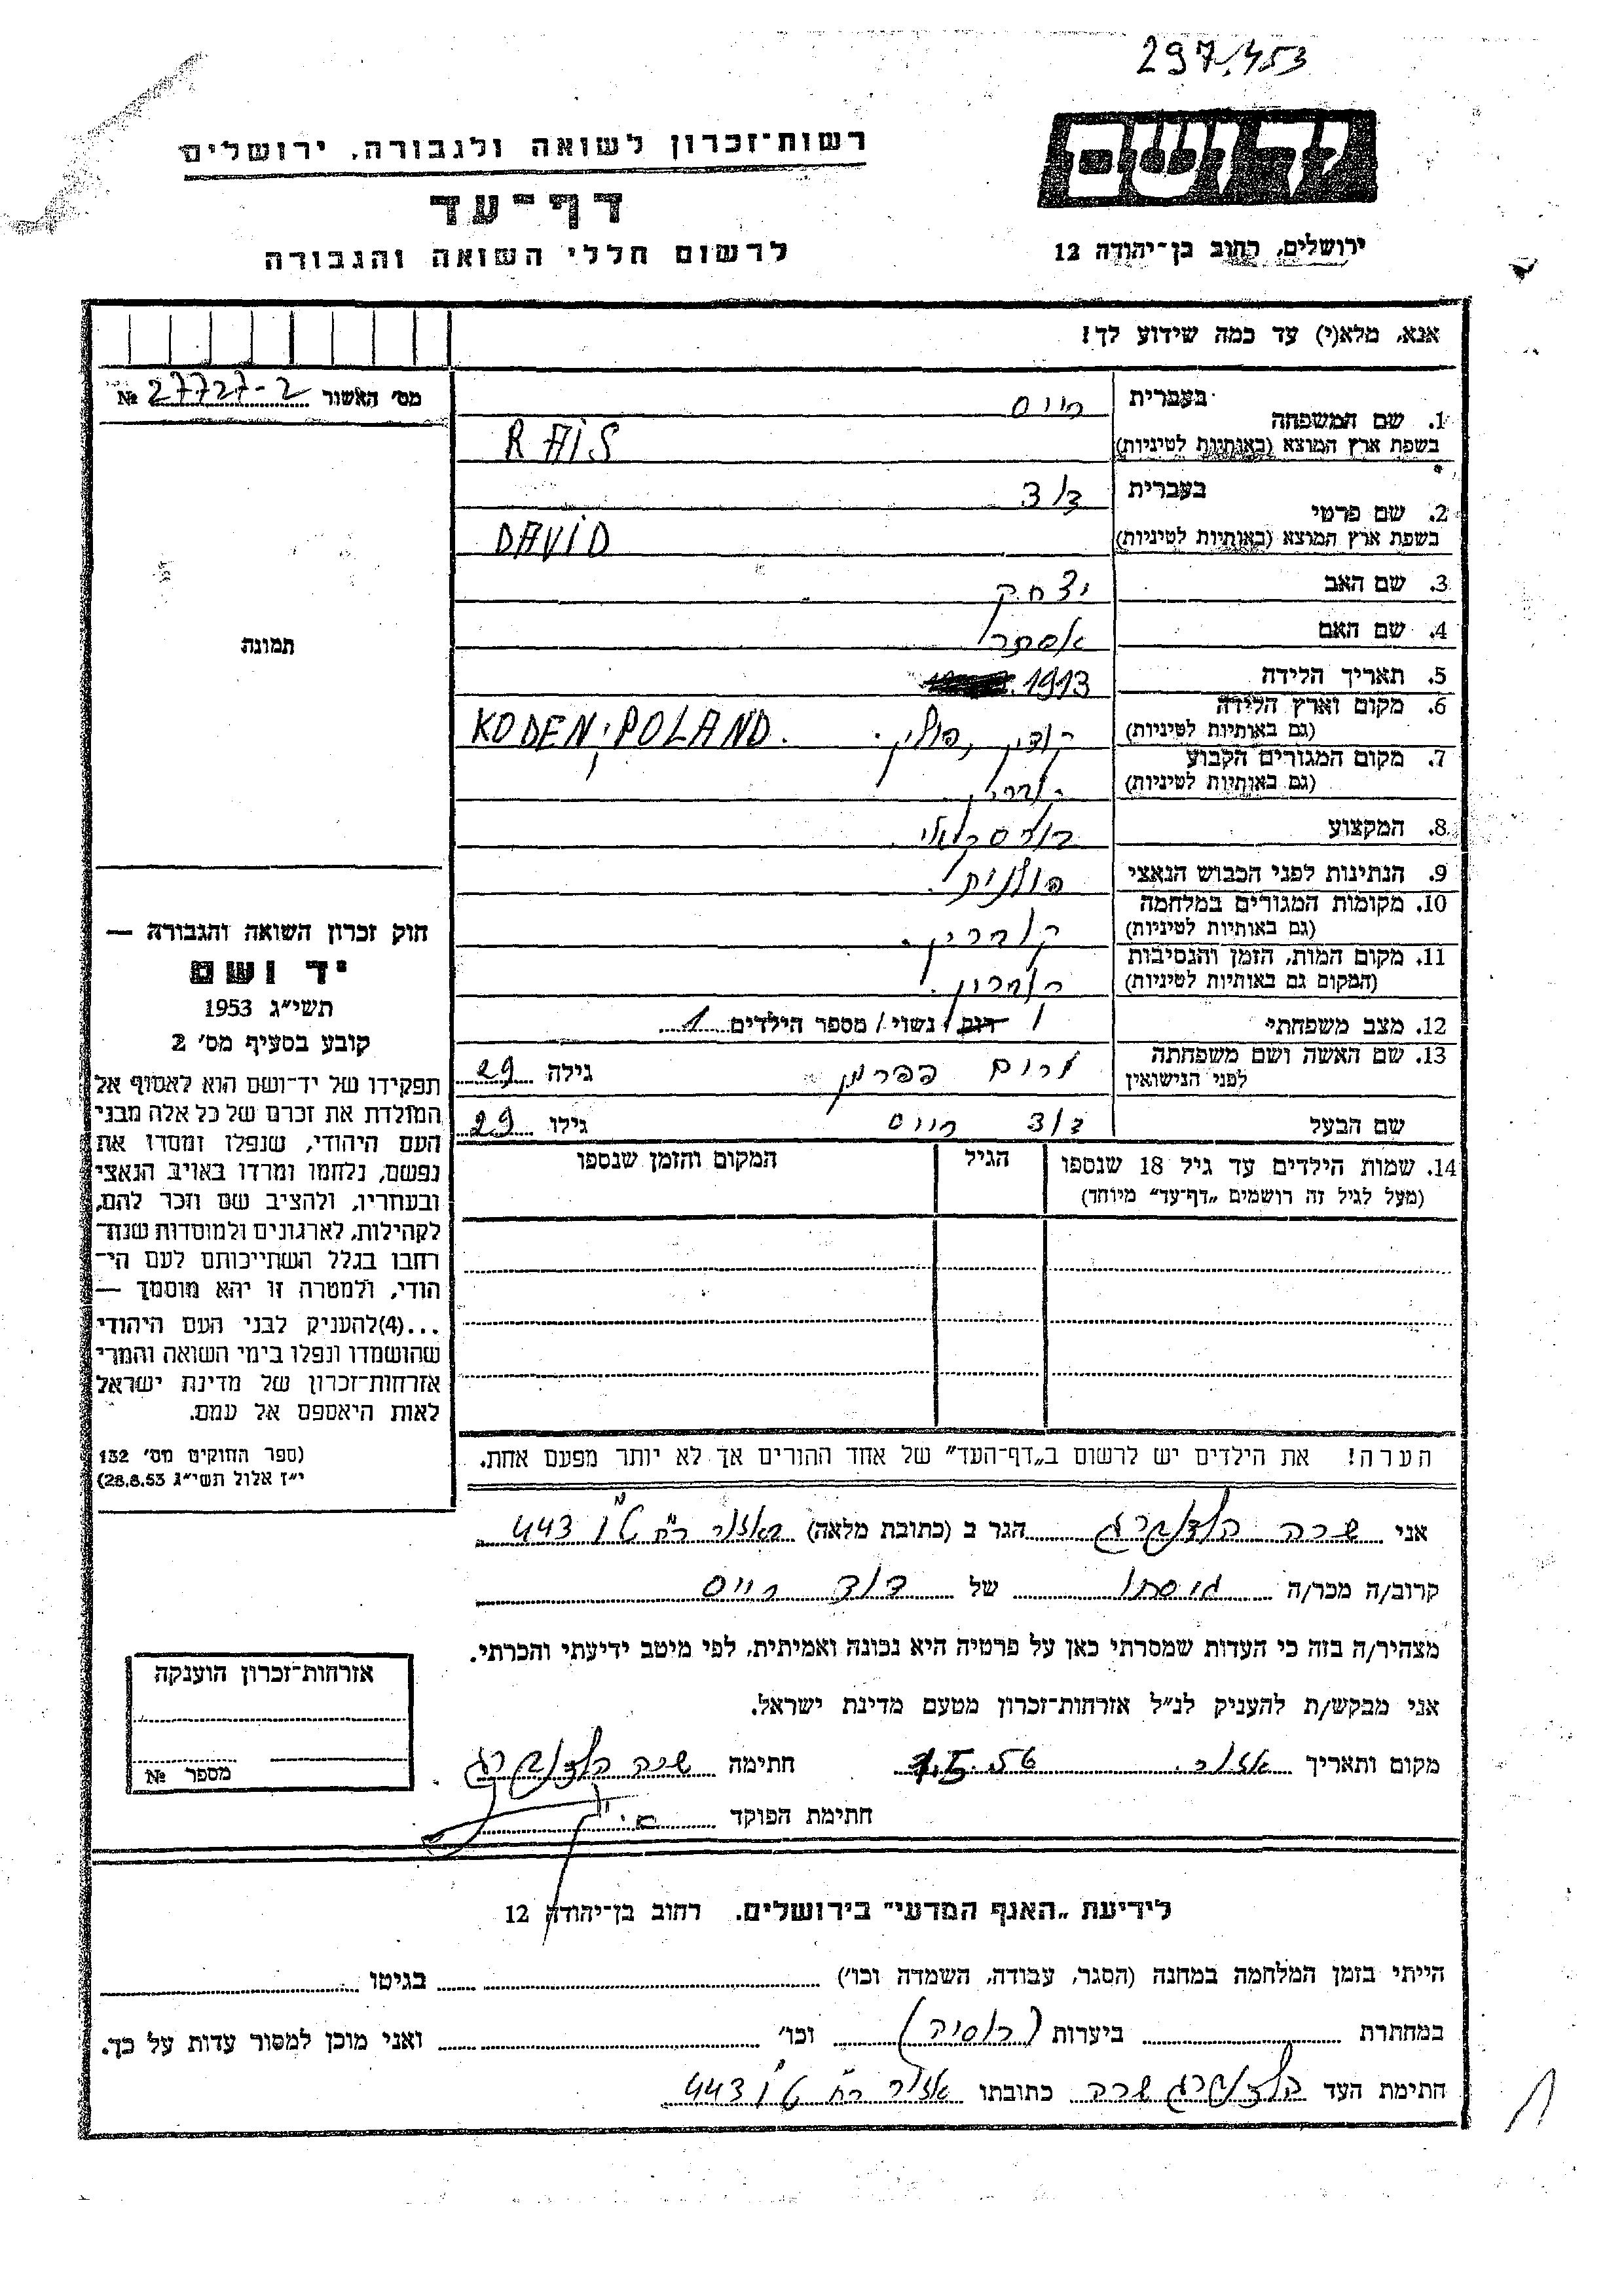 297/453
יד ושם
ירושלים, רחוב בן־יהודה 12
רשות־זכרון לשואה ולגבורה, ירושלים
דף־עד
לרשום חללי השואה והגבורה
אנא, מלא(י) עד כמה שידוע לך!
מס׳ האשור 27727-2 №
1. שם המשפחה
בעברית רייס
בשפת ארץ המוצא (באותיות לטיניות) RAIS
2. שם פרטי
בעברית דוד
בשפת ארץ המוצא (באותיות לטיניות) DAVID
3. שם האב יצחק
4. שם האם אסתר
5. תאריך הלידה 1913
6. מקום וארץ הלידה
(גם באותיות לטיניות) קודין, פולין. KODEN, POLAND.
7. מקום המגורים הקבוע
(גם באותיות לטיניות)
8. המקצוע
9. הנתינות לפני הכבוש הנאצי פולנית.
10. מקומות המגורים במלחמה
(גם באותיות לטיניות)
11. מקום המות, הזמן והנסיבות
(המקום גם באותיות לטיניות)
12. מצב משפחתי רווק / נשוי / מספר הילדים 1
13. שם האשה ושם משפחתה
לפני הנישואין גילה 29
שם הבעל דוד רייס גילו 29
14. שמות הילדים עד גיל 18 שנספו
(מעל לגיל זה רושמים „דף־עד״ מיוחד)
הגיל
המקום והזמן שנספו
הערה! את הילדים יש לרשום ב„דף־העד״ של אחד ההורים אך לא יותר מפעם אחת.
תמונה
חוק זכרון השואה והגבורה —
יד ושם
תשי״ג 1953
קובע בסעיף מס׳ 2
תפקידו של יד־ושם הוא לאסוף אל
המולדת את זכרם של כל אלה מבני
העם היהודי, שנפלו ומסרו את
נפשם, נלחמו ומרדו באויב הנאצי
ובעוזריו, ולהציב שם וזכר להם,
לקהילות, לארגונים ולמוסדות שנח־
רבו בגלל השתייכותם לעם הי־
הודי, ולמטרה זו יהא מוסמך —
...(4)להעניק לבני העם היהודי
שהושמדו ונפלו בימי השואה והמרי
אזרחות־זכרון של מדינת ישראל
לאות היאספם אל עמם.
(ספר החוקים מס׳ 132
י״ז אלול תשי״ג 28.8.53)
אני שרה הולצברג הגר ב (כתובת מלאה) 443
קרוב/ה מכר/ה גיסתו של דוד רייס
מצהיר/ה בזה כי העדות שמסרתי כאן על פרטיה היא נכונה ואמיתית, לפי מיטב ידיעתי והכרתי.
אני מבקש/ת להעניק לנ״ל אזרחות־זכרון מטעם מדינת ישראל.
מקום ותאריך אזור. 1.5.56 חתימה שרה הולצברג
חתימת הפוקד
אזרחות־זכרון הוענקה
מספר №
לידיעת „האגף המדעי״ בירושלים. רחוב בן־יהודה 12
הייתי בזמן המלחמה במחנה (הסגר, עבודה, השמדה וכו׳) בגיטו
במחתרת ביערות (רוסיה) וכו׳ ואני מוכן למסור עדות על כך.
חתימת העד הולצברג שרה כתובתו אזור 443